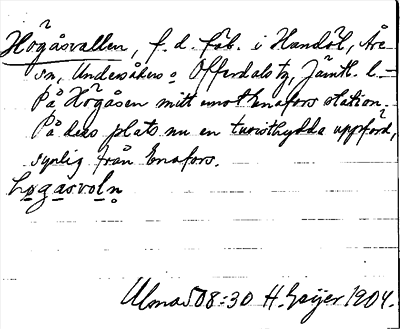 Högåsvallen, f. d. fäb. i Handöl, Åre
sn, Undersåkers o Offerdals tg, Jämtl. l.—
På Högåsen mitt emot Enafors station.
På dess plats nu en turisthydda uppförd,
synlig från Enafors.
Løgåsvoln
Ulma 508:30 H. Geijer 1904.